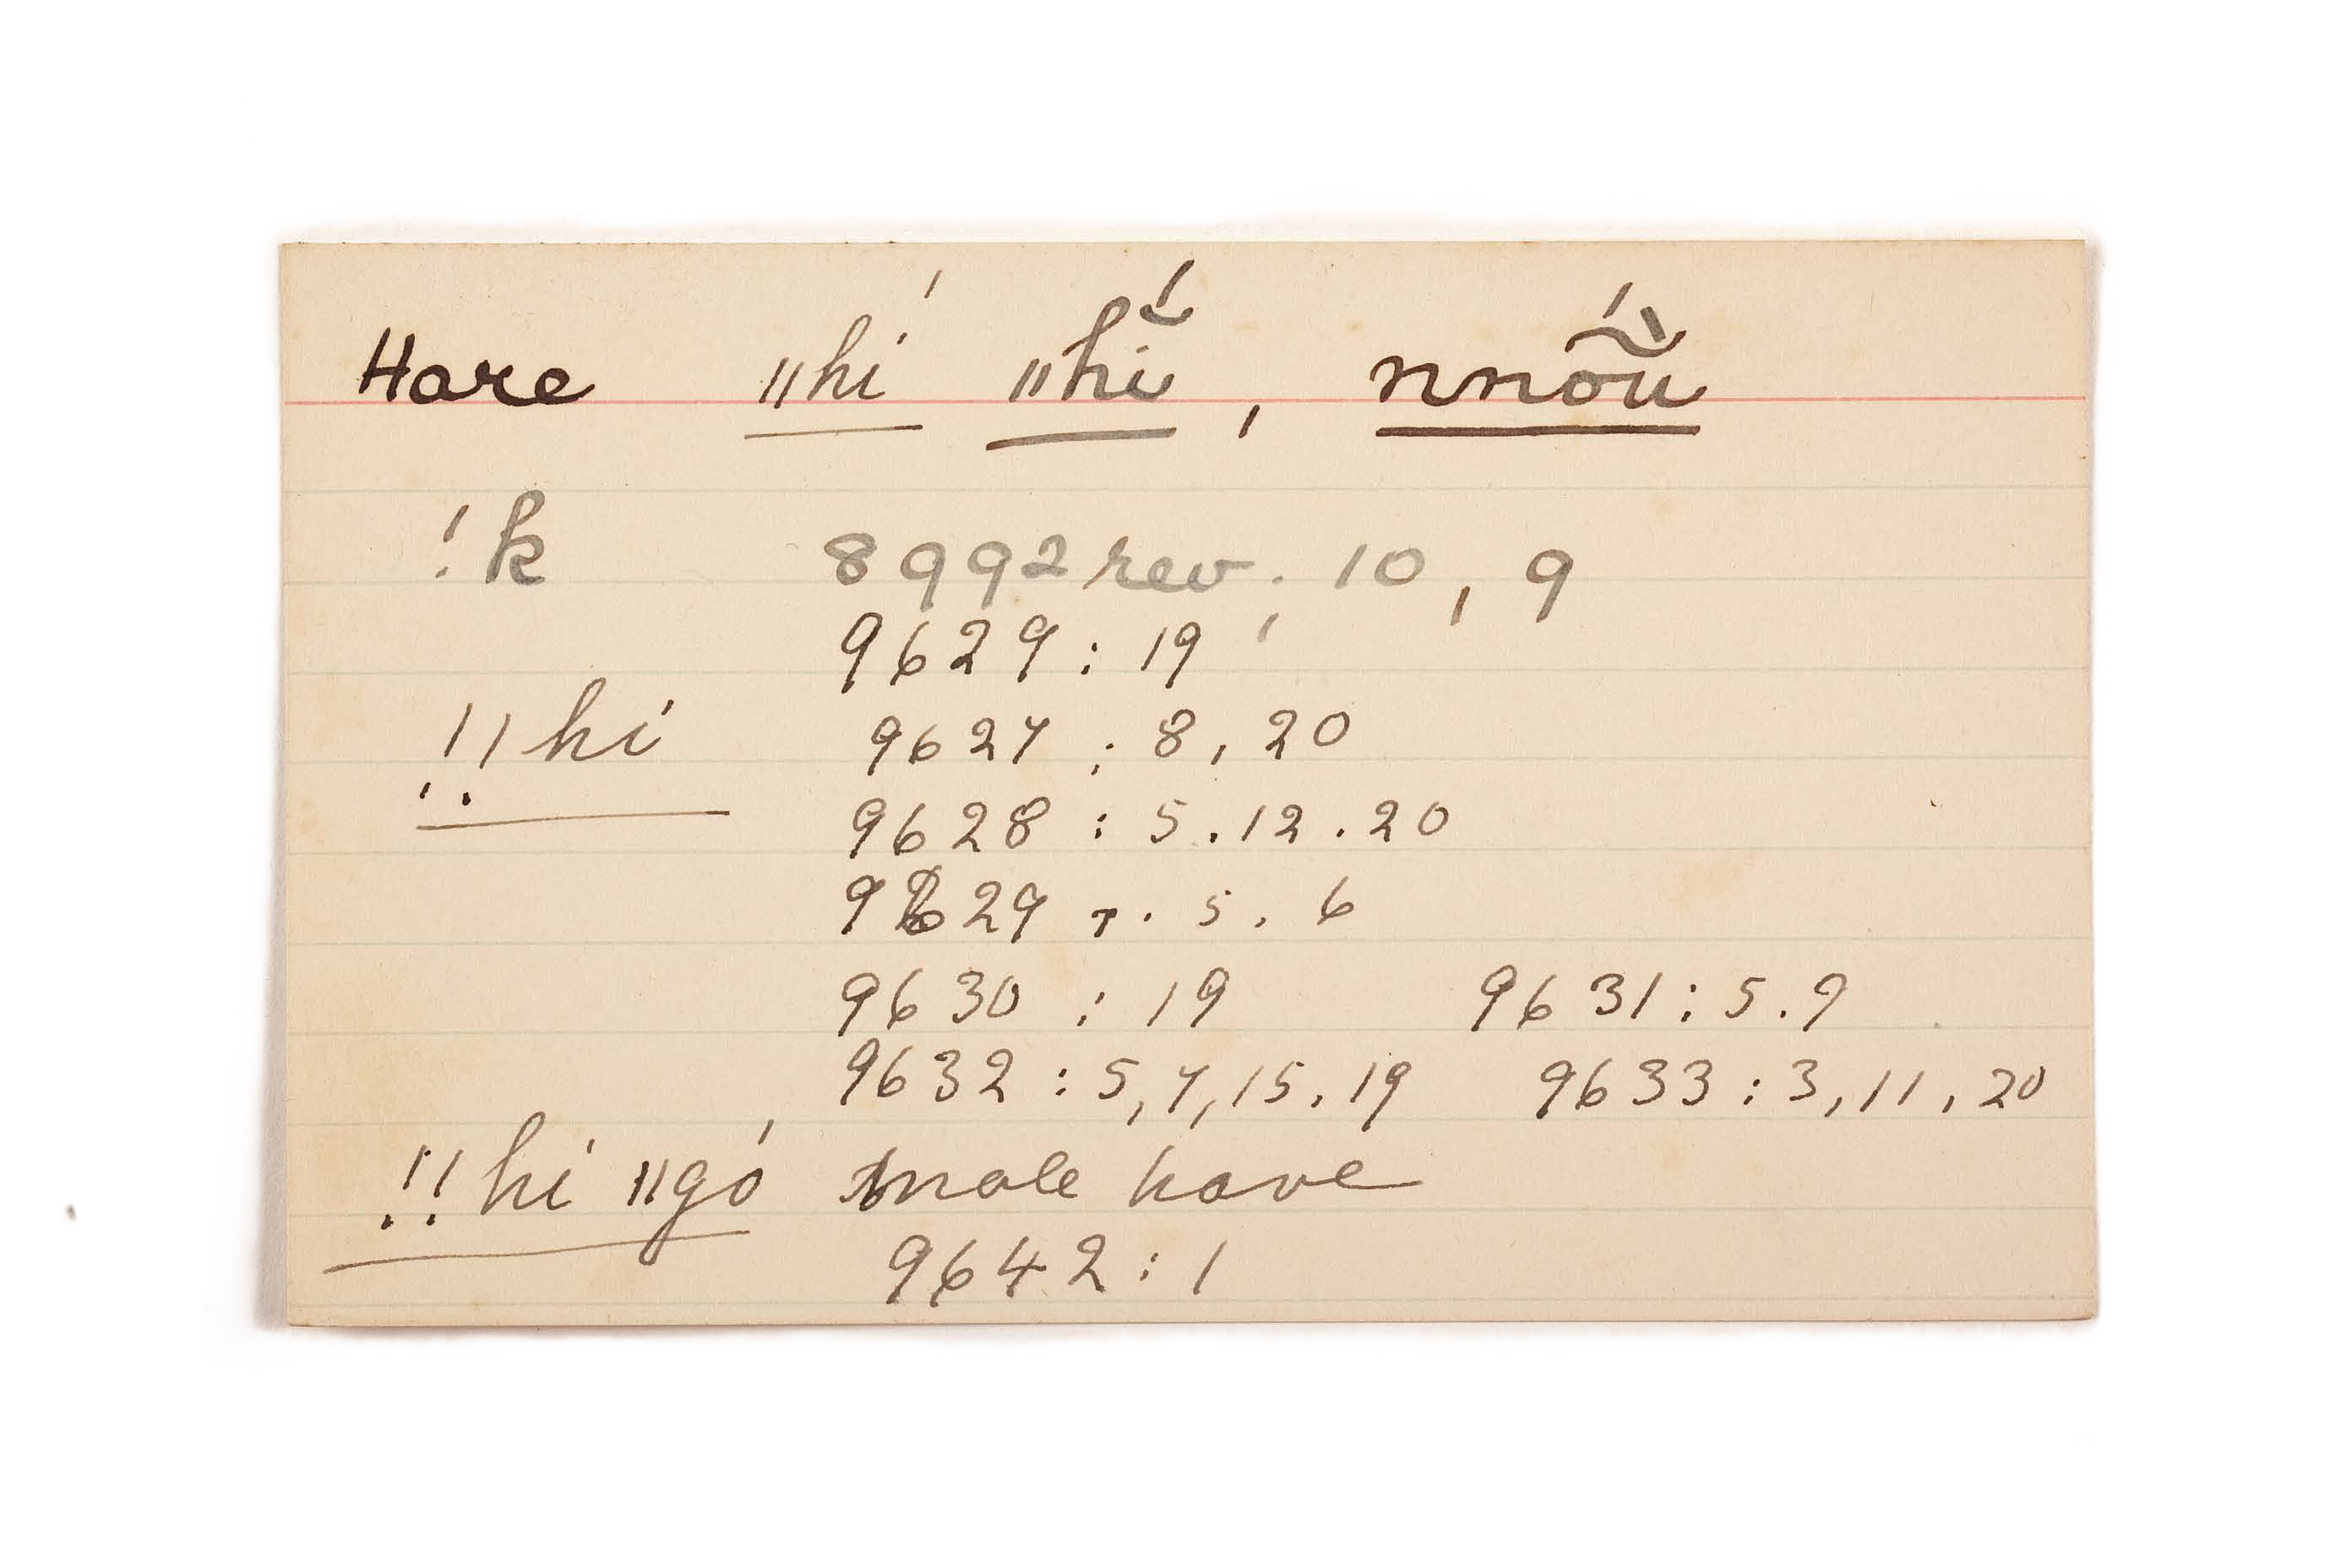 Hare ǁhí ǁhĭ́, nnõũ
!k 8992 rev. 10, 9
9629 : 19
!!hi 9627 : 8, 20
9628 : 5.12.20
9629 . 5. 6
9630 : 19 9631 : 5.9
9632 : 5,7,15.19 9633 : 3,11,20
!!hi ǁgó male hare
9642 : 1